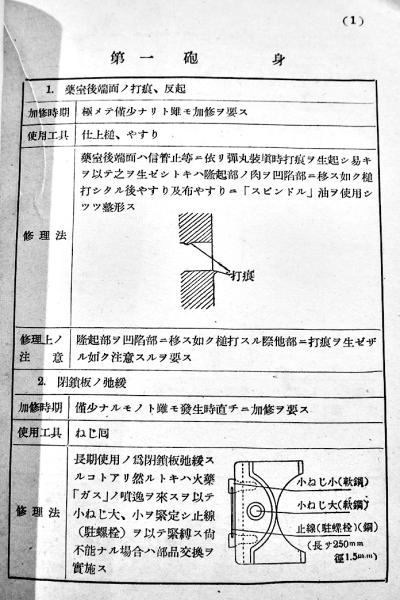 (1)
第一 砲身
1. 藥室後端面ノ打痕、反起
加修時期 極メテ僅少ナリト雖モ加修ヲ要ス
使用工具 仕上槌、やすり
修理法
藥室後端面ハ信管止等ニ依リ彈丸裝塡時打痕ヲ生起シ易キ
ヲ以テ之ヲ生ゼシトキハ隆起部ノ肉ヲ凹陷部ニ移ス如ク槌
打シタル後やすり及布やすりニ「スピンドル」油ヲ使用シ
ツツ整形ス
打痕
修理上ノ
注意
隆起部ヲ凹陷部ニ移ス如ク槌打スル際他部ニ打痕ヲ生ゼザ
ル如ク注意スルヲ要ス
2. 閉鎖板ノ弛緩
加修時期 僅少ナルモノト雖モ發生時直チニ加修ヲ要ス
使用工具 ねじ囘
修理法
長期使用ノ爲閉鎖板弛緩ス
ルコトアリ然ルトキハ火藥
「ガス」ノ噴逸ヲ來スヲ以テ
小ねじ大、小ヲ緊定シ止線
(駐螺栓)ヲ以テ緊縛ス尙
不能ナル場合ハ部品交換ヲ
實施ス
小ねじ小(軟鋼)
小ねじ大(軟鋼)
止線(駐螺栓)(鋼)
(長サ250mm
徑1.5mm)